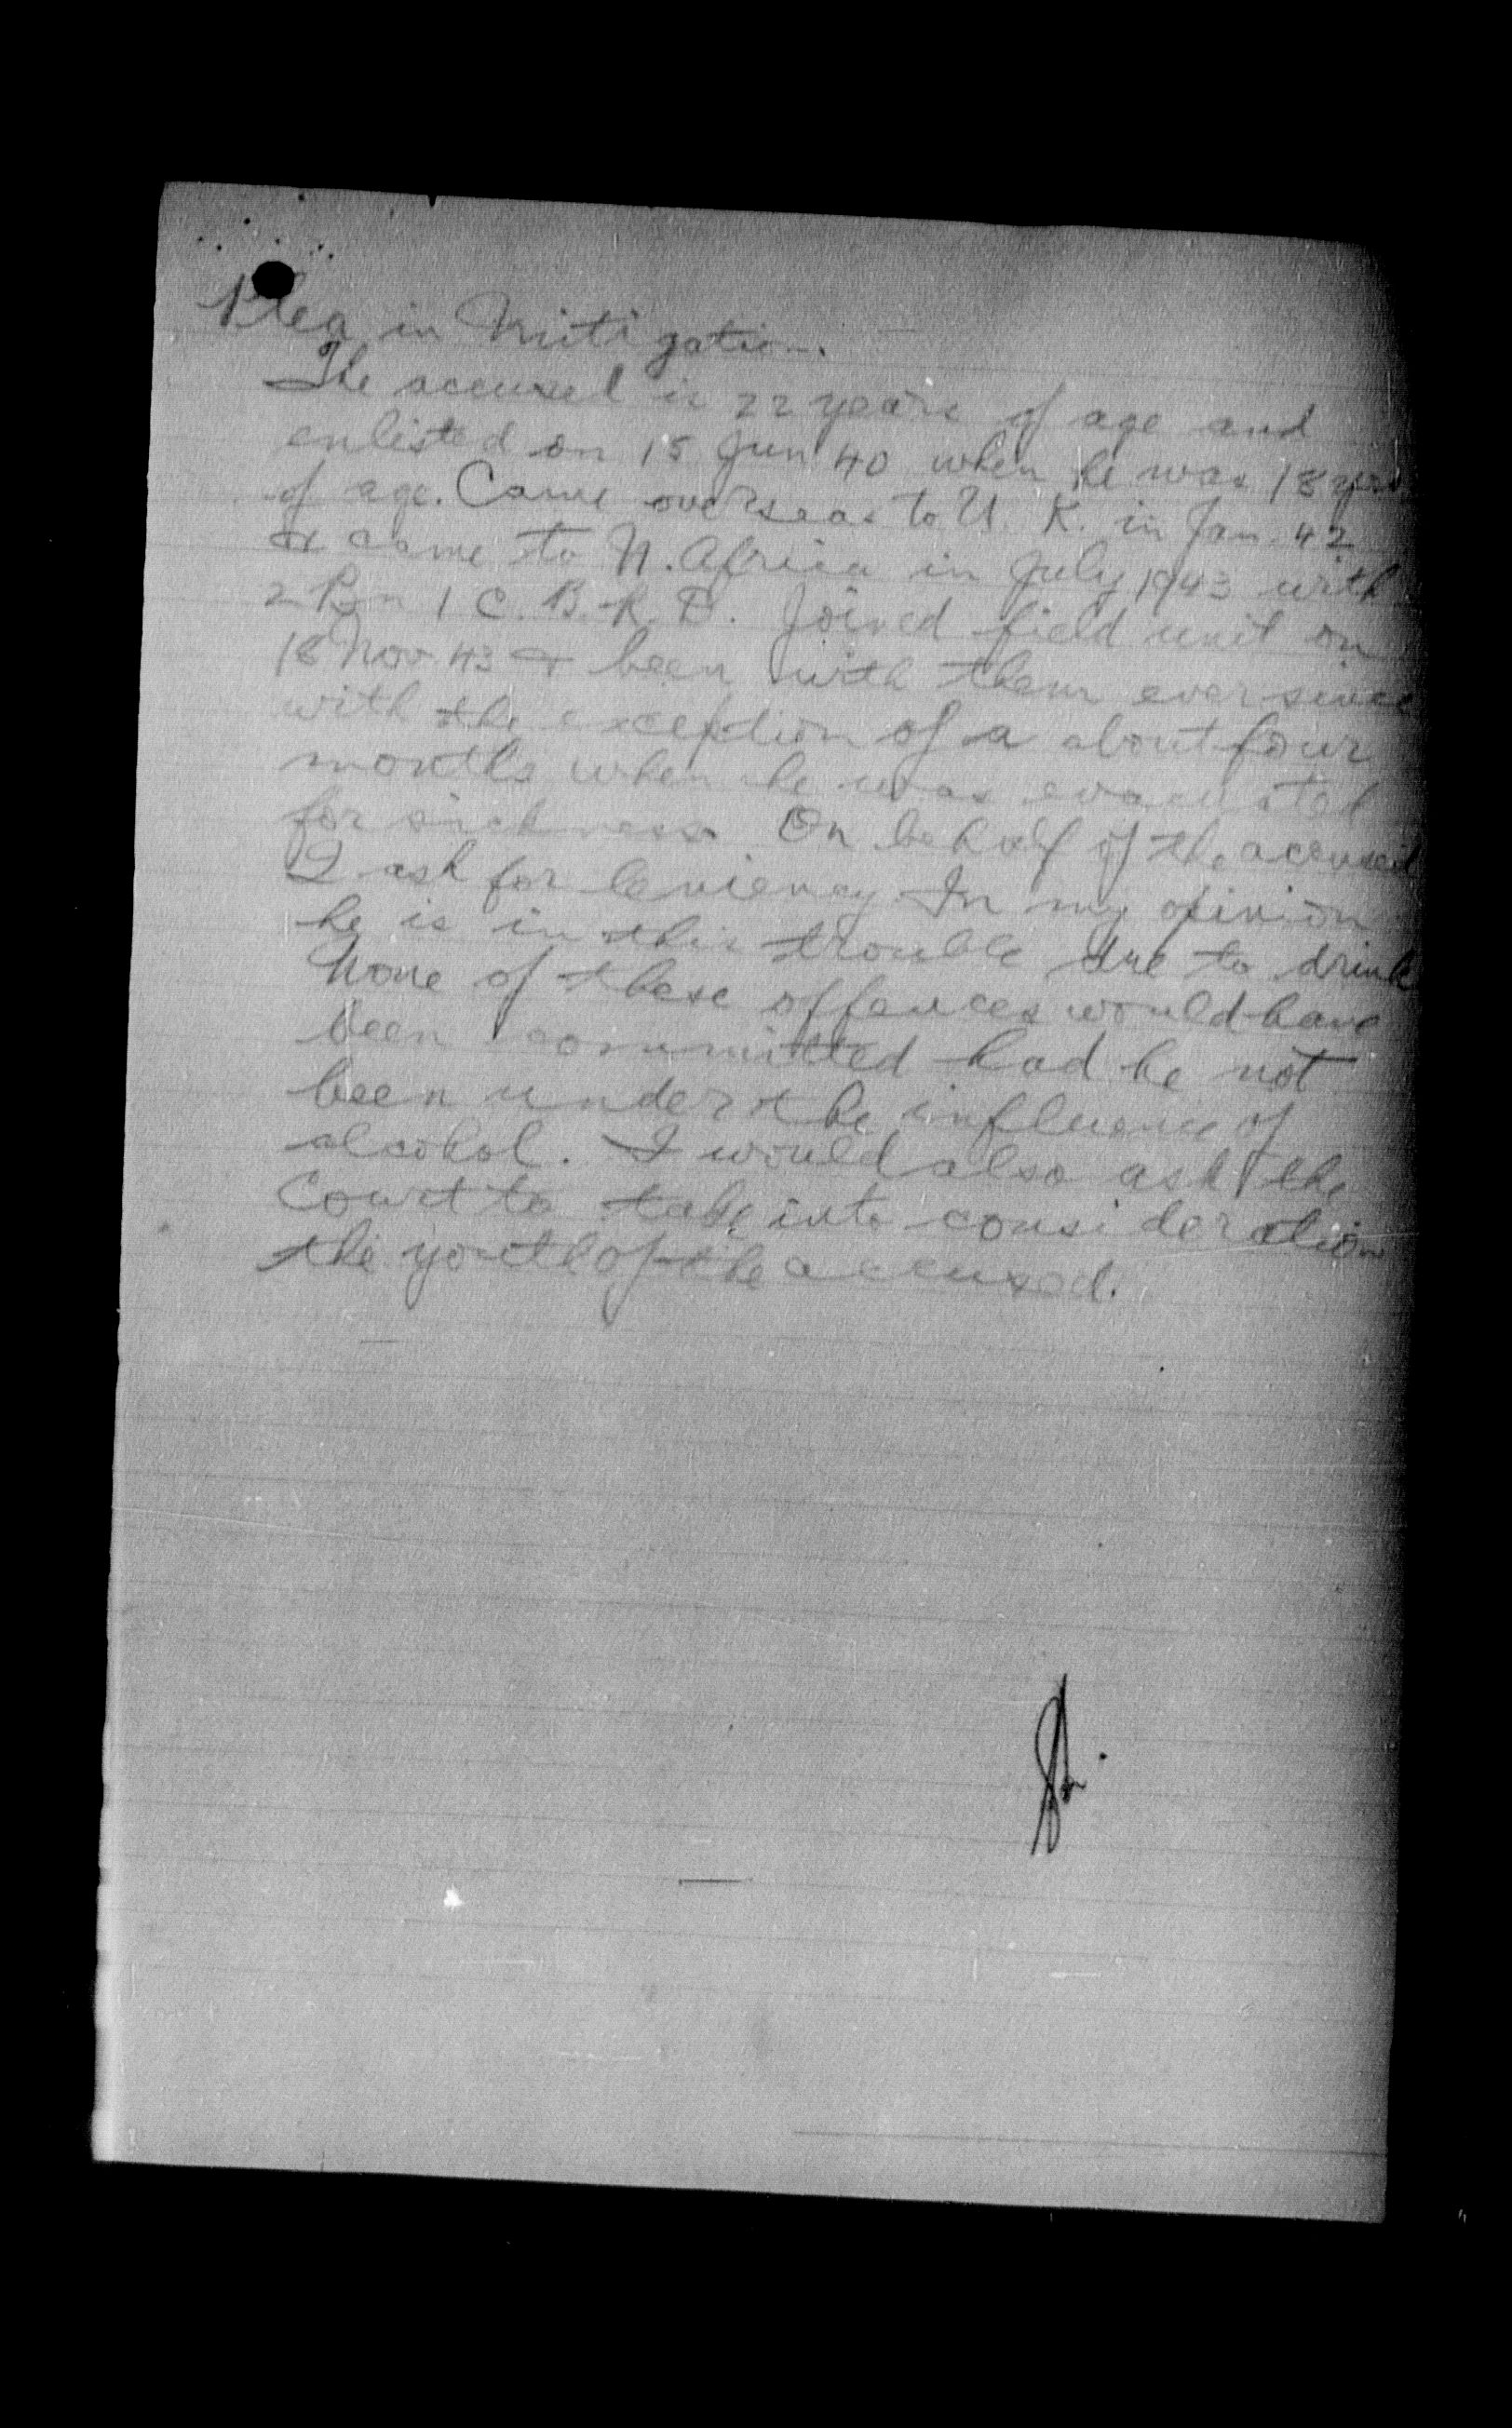 Plea in Mitigation.
The accused is 22 years of age and
enlisted on 15 Jun 40 when he was 18 yrs
of age. Came overseas to U. K. in Jan 42
& came to N. Africa in July 1943 with
2 Bn 1 C. B. R. D. Joined field unit on
18 Nov 43 & been with them ever since
with the exception of a about four
months when he was evacuated
for sickness. On behalf of the accused
I ask for leniency In my opinion
he is in this trouble due to drink
None of these offences would have
been committed had he not
been under the influence of
alcohol. I would also ask the
Court to take into consideration
the youth of the accused.